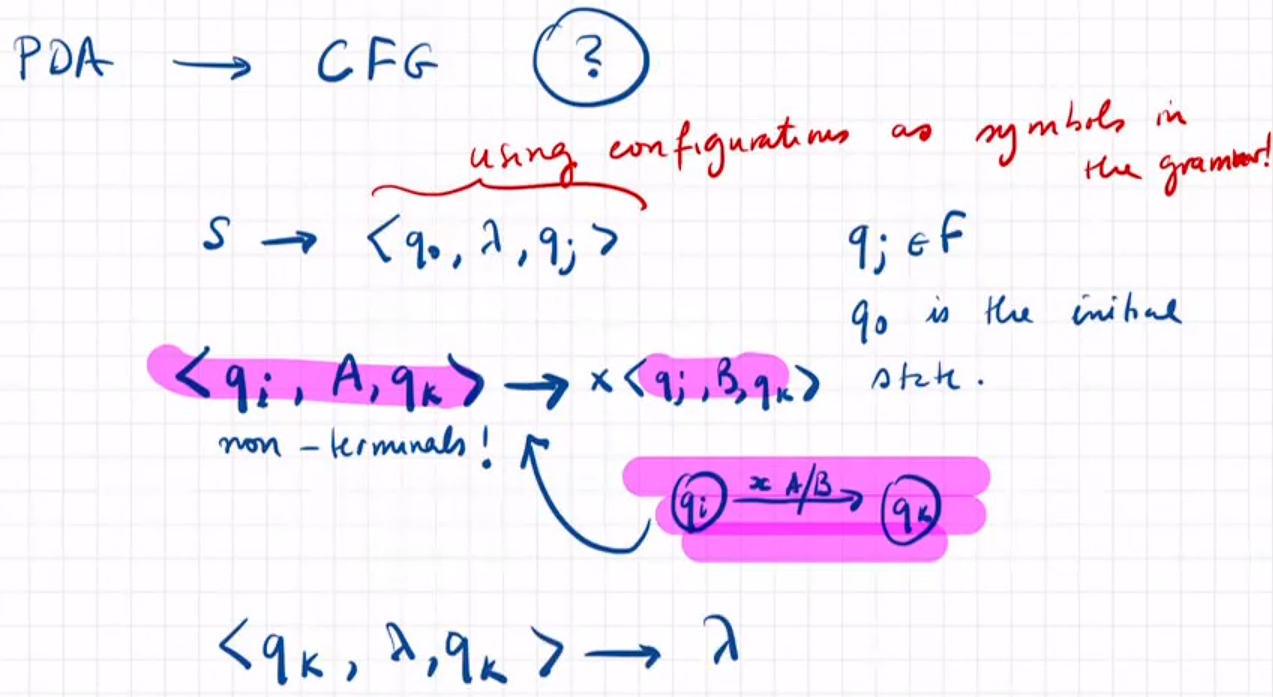 PDA → CFG ?
using configurations as symbols in
the grammar!
S → <q₀, λ, qⱼ> qⱼ ∈ F
q₀ is the initial
<qᵢ, A, qₖ> → x <qⱼ, B, qₖ> state.
non-terminals!
qᵢ x A/B → qₖ
<qₖ, λ, qₖ> → λ